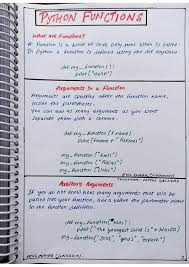 PYTHON FUNCTIONS
What are Functions?
A Function is a block of code only runs when it is called.
In Python a Function is defined using the def keyword
def my_function():
print("Hello")
Arguments In a Function
Arguments are specified after the function name,
inside the parentheses.
You can add as many arguments as you want
separate them with a comma.
def my_function(fname)
print(fname + "
my_function("
my_function("
my_function("
Arbitary Arguments
If you do not know how many arguments that will be
passed into your function, add a * before the parameter name
in the function definition.
def my_function(*kids):
print("The youngest child is " + kids[2])
my_function("